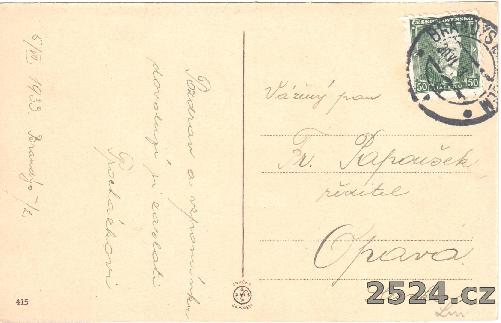 5/VII. 1933 Brandýs n/L
Pozdrav a vzpomínku
dovolují si zaslati
Procházkovi
415
ČESKOSLOVENSKO
50 50
BRANDÝS
Vážený pan
Fr. Papoušek
ředitel
Opava
2524.cz